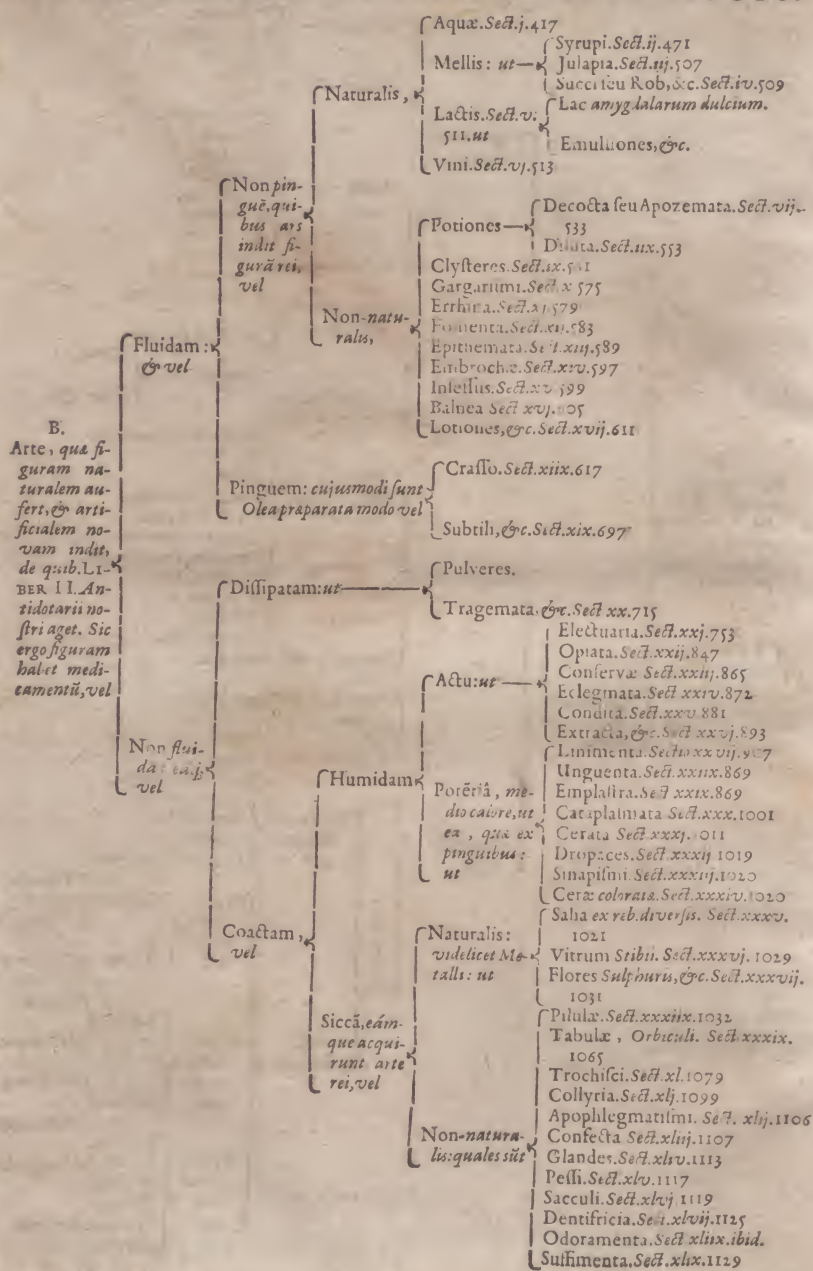 B.
Arte, quæ fi-
guram na-
turalem au-
fert, & arti-
ficialem no-
vam indit,
de quib. LI-
BER II. An-
tidotarii no-
ſtri aget. Sic
ergo figuram
habet medi-
camentū, vel
Fluidam:
& vel
Non pin-
guē, qui-
bus ars
indit fi-
gurā rei,
vel
Naturalis,
Aquæ. Sect. j. 417
Mellis: ut
Syrupi. Sect. ij. 471
Julapia. Sect. iij. 507
Succi ſeu Rob, &c. Sect. iv. 509
Lactis. Sect. v.
511. ut
Lac amygdalarum dulcium.
Emulſiones, &c.
Vini. Sect. vj. 513
Non-natu-
ralis,
Potiones
Decocta ſeu Apozemata. Sect. vij.
533
Diluta. Sect. iix. 553
Clyſteres. Sect. ix.
Gargariſmi. Sect. x 575
Errhina. Sect. xj. 579
Fomenta. Sect. xij. 583
Epithemata. Sect. xiij. 589
Embrochæ. Sect. xiv. 597
Inſeſſus. Sect. xv 599
Balnea Sect xvj.
Lotiones, &c. Sect. xvij. 611
Pinguem: cujuſmodi ſunt
Olea præparata modo vel
Craſſo. Sect. xiix. 617
Subtili, &c. Sect. xix. 697
Non flui-
dam:
vel
Diſſipatam: ut
Pulveres.
Tragemata. &c. Sect xx. 715
Coactam,
vel
Humidam
Actu: ut
Electuaria. Sect. xxj. 753
Opiata. Sect. xxij. 847
Conſervæ Sect. xxiij. 865
Eclegmata. Sect xxiv. 872
Condita. Sect. xxv 881
Extracta, &c. Sect xxvj. 893
Potētiâ, me-
dio calore, ut
ea, quæ ex
pinguibus:
ut
Linimenta. Sectio xxvij.
Unguenta. Sect. xxiix. 869
Emplaſtra. Sect xxix. 869
Cataplaſmata Sect. xxx. 1001
Cerata Sect. xxxj. 1011
Dropaces. Sect. xxxij 1019
Sinapiſmi. Sect. xxxiij. 1020
Ceræ colorata. Sect. xxxiv. 1020
Siccā, eám-
que acqui-
runt arte
rei, vel
Naturalis:
videlicet Me-
talli: ut
Salia ex reb. diverſis. Sect. xxxv.
1021
Vitrum Stibii. Sect. xxxvj. 1029
Flores Sulphuris, &c. Sect. xxxvij.
1031
Non-natura-
lis: quales sūt
Pilulæ. Sect. xxxiix. 1032
Tabulæ, Orbiculi. Sect. xxxix.
1065
Trochiſci. Sect. xl. 1079
Collyria. Sect. xlj. 1099
Apophlegmatiſmi. Sect. xlij. 1106
Confecta Sect. xliij. 1107
Glandes. Sect. xliv. 1113
Peſſi. Sect. xlv. 1117
Sacculi. Sect. xlvj 1119
Dentifricia. Sect. xlvij. 1125
Odoramenta. Sect xliix. ibid.
Suffimenta. Sect. xlix. 1129